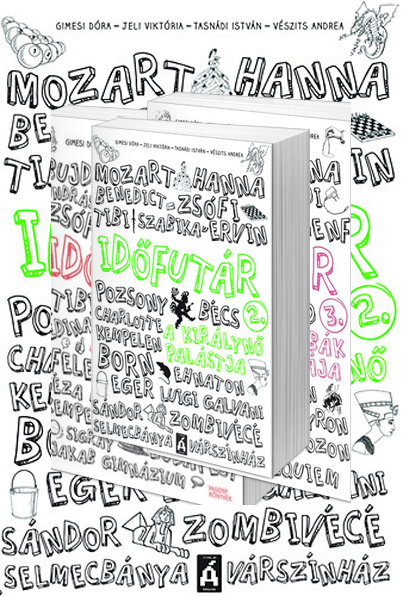 GIMESI DÓRA – JELI VIKTÓRIA – TASNÁDI ISTVÁN – VÉSZITS ANDREA
MOZART HANNA
GIMESI DÓRA – JELI VIKTÓRIA – TASNÁDI ISTVÁN – VÉSZITS ANDREA
MOZART HANNA
BENEDICT ZSÓFI
TIBI SZABIKA ERVIN
IDŐFUTÁR
2.
POZSONY BÉCS
CHARLOTTE
KEMPELEN
A KIRÁLYNŐ
PALÁSTJA
BORN EHNATON
EGER LUIGI GALVANI
SÁNDOR ZOMBIVÉCÉ
SELMECBÁNYA Á VÁRSZÍNHÁZ
3.
2.
JAKAB GIMNÁZIUM
PAGONY
KÖNYVEK
EGER
SÁNDOR ZOMBIVÉCÉ
SELMECBÁNYA Á VÁRSZÍNHÁZ